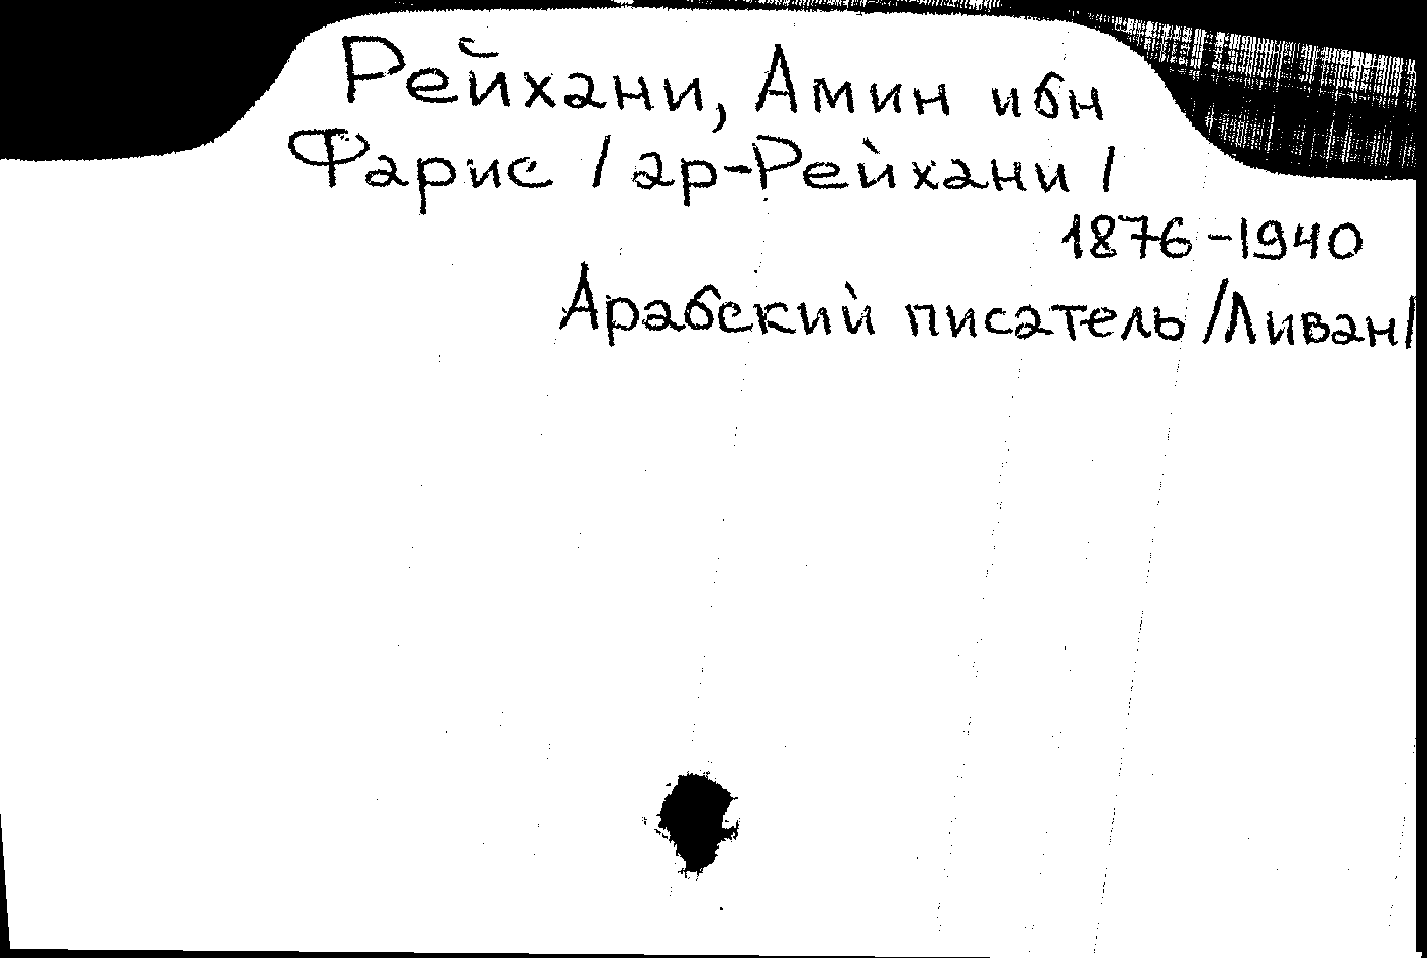 Рейхани, Амин ибн
Фарис / ар-Рейхани /
1876-1940
Арабский писатель /Ливан/